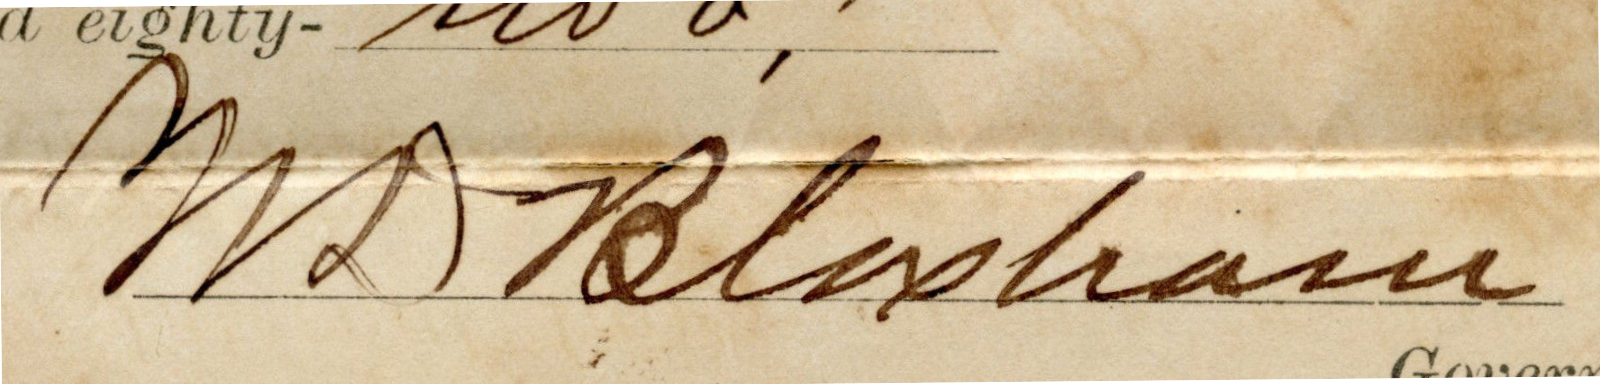 d eighty-two,
W D Bloxham
Govern